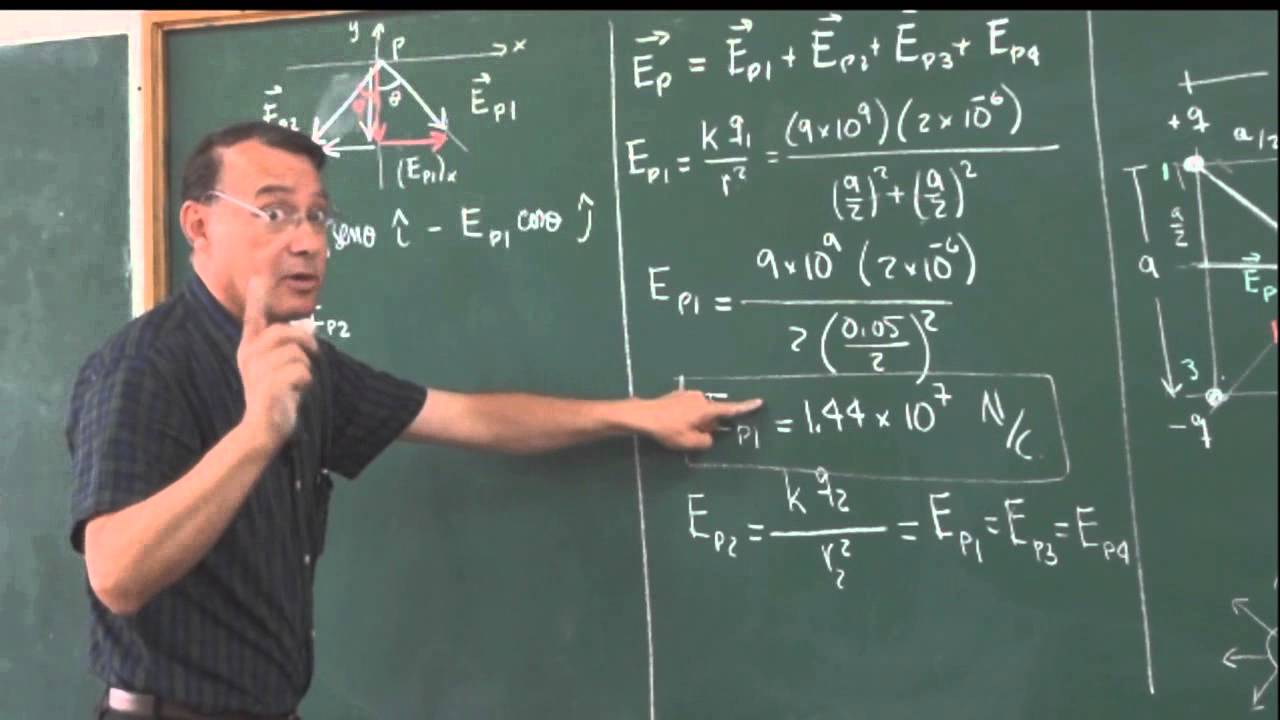 y
P
x
θ
E⃗p2
E⃗p1
(Ep1)x
senθ î - Ep1 cosθ ĵ
p2
E⃗p = E⃗p1 + E⃗p2 + E⃗p3 + Ep4
Ep1 = k q1 / r² = (9×10⁹)(2×10⁻⁶) / (a/2)² + (a/2)²
Ep1 = 9×10⁹ (2×10⁻⁶) / 2(0.05/2)²
Ep1 = 1.44 × 10⁷ N/C
Ep2 = k q2 / r2² = Ep1 = Ep3 = Ep4
+q
a/2
1
a/2
a
E⃗p
3
-q